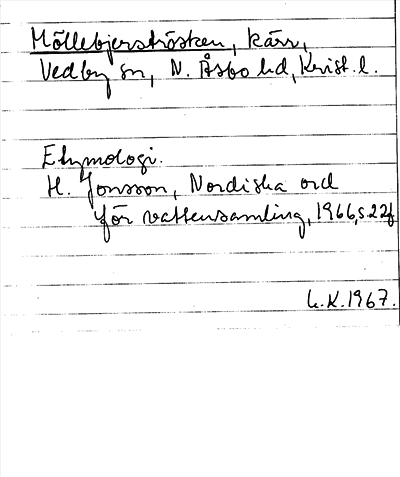 Möllebjerströsken, kärr,
Vedby sn, N. Åsbo hd, Krist. l.
Etymologi.
H. Jonsson, Nordiska ord
för vattensamling, 1966, s. 22f
L.K. 1967.